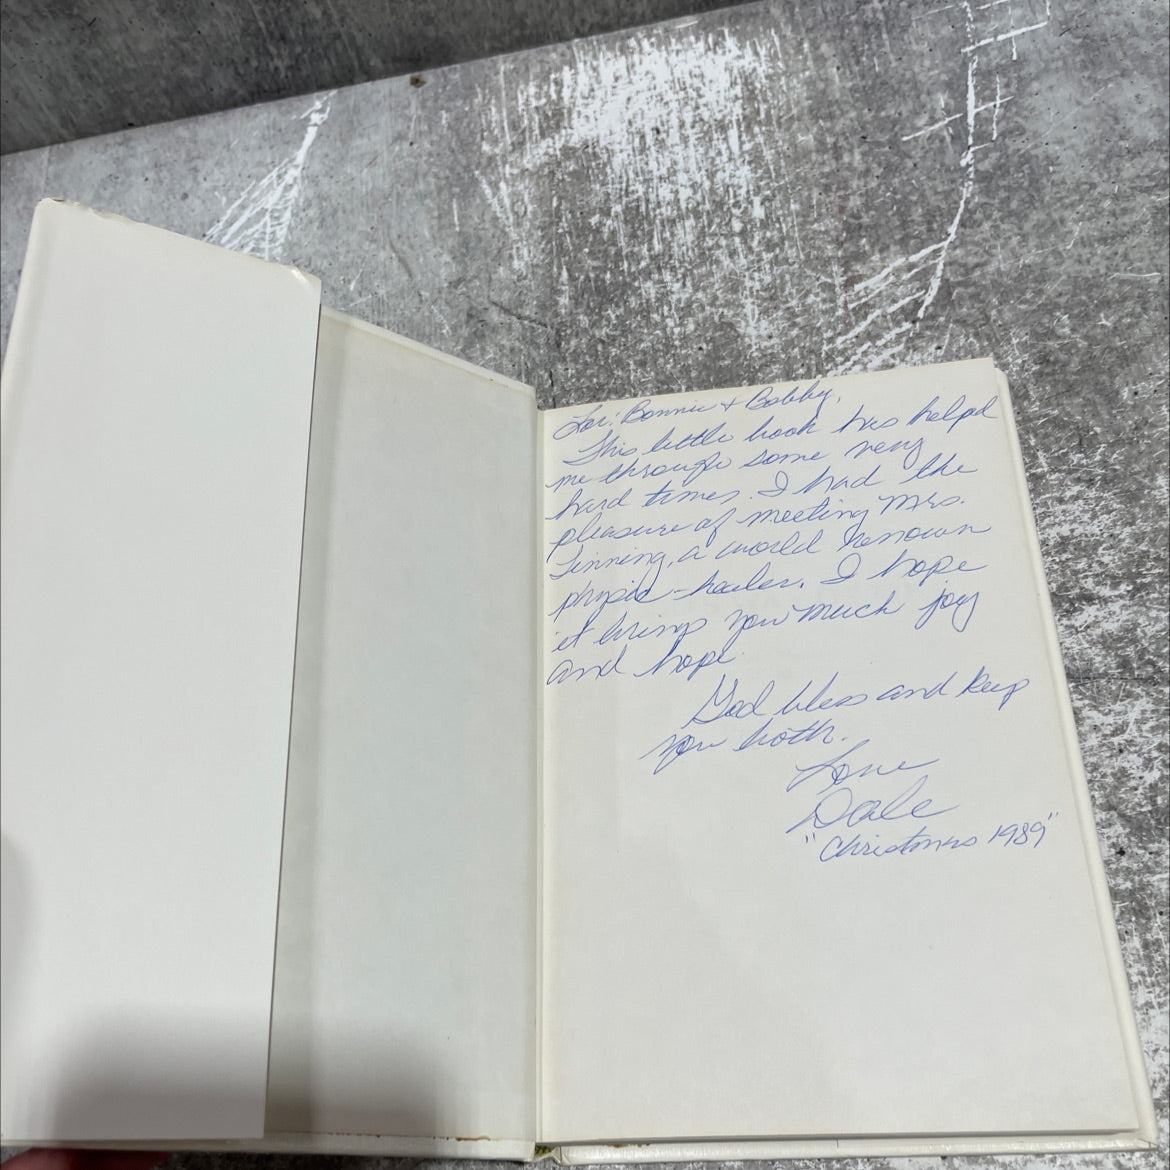 For: Bonnie + Bobby,
This little book has helped
me through some very
hard times. I had the
pleasure of meeting Mrs.
Tinning, a world renown
physic-healer. I hope
it brings you much joy
and hope.
God bless and keep
you both.
Love
Dale
"Christmas 1989"